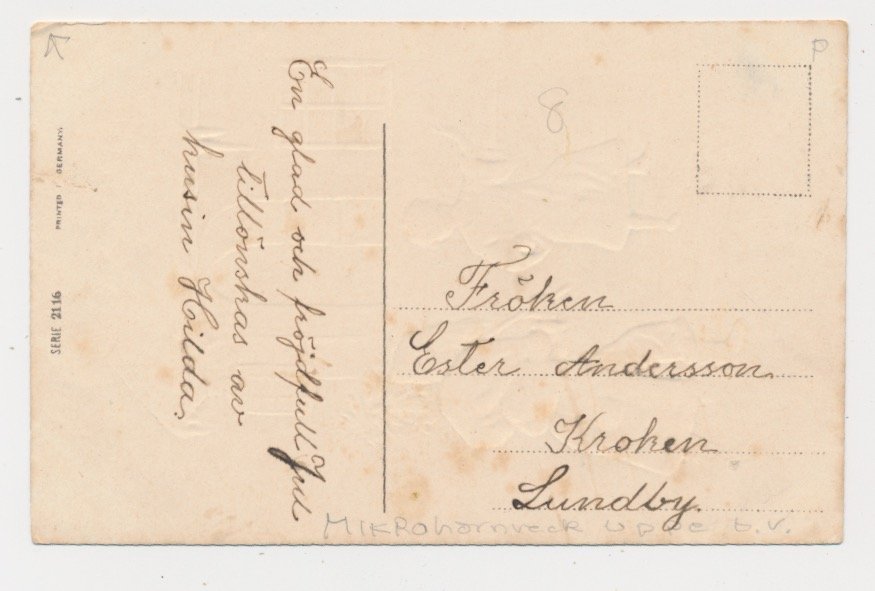 En glad och fröjdfull Jul
tillönskas av
kusin Hilda.
Fröken
Ester Andersson
Kroken
Lundby.
SERIE 2116
PRINTED / GERMANY.
8
Mikrohörnveck uppe t.v.